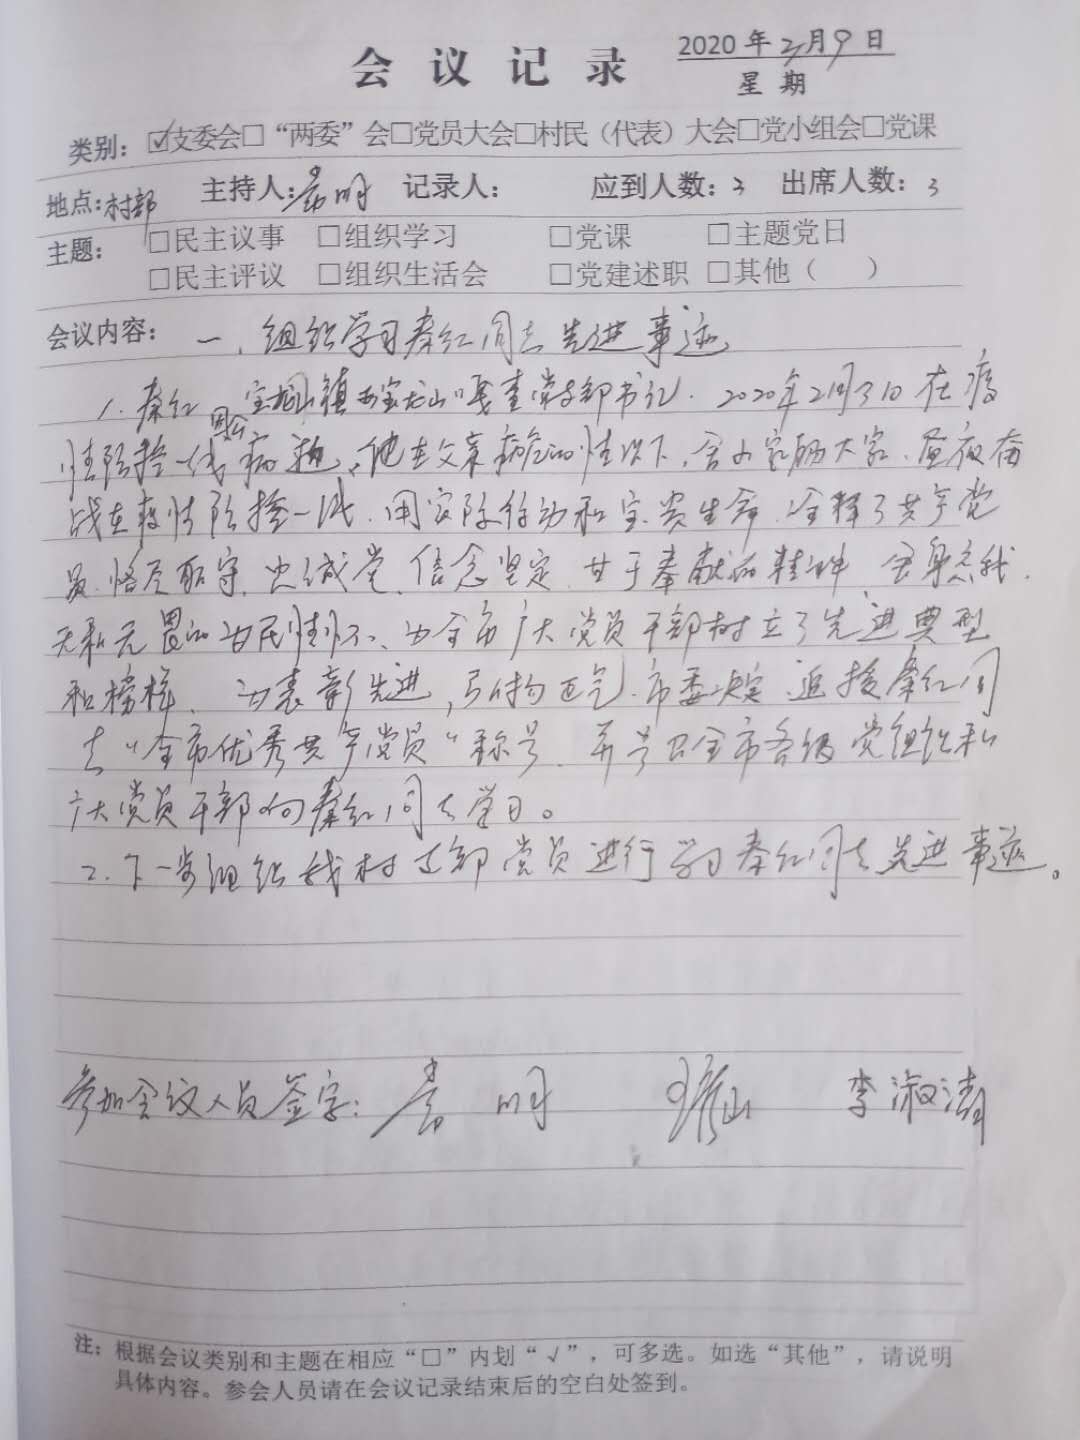 会议记录
2020年2月9日
星期
类别：☑支委会□“两委”会□党员大会□村民（代表）大会□党小组会□党课
地点：村部 主持人： 记录人： 应到人数：3 出席人数：3
主题： □民主议事 □组织学习 □党课 □主题党日
□民主评议 □组织生活会 □党建述职 □其他（ ）
会议内容： 一、组织学习秦红同志先进事迹
1. 秦红 宝龙山镇西宝龙山嘎查党支部书记. 2020年2月3日在疫
因公
情防控一线病 他在父亲病危的情况下、舍小家顾大家、昼夜奋
战在疫情防控一线、用实际行动和宝贵生命、诠释了共产党
员、恪尽职守、忠诚党、信念坚定、甘于奉献的精神 舍身忘我、
无私无畏的为民情怀、为全市广大党员干部树立了先进典型
和榜样、为表彰先进，弘扬正气、市委决定 追授秦红同
志“全市优秀共产党员”称号、并号召全市各级党组织和
广大党员干部向秦红同志学习。
2. 下一步组织我村支部党员进行学习秦红同志先进事迹。
参加会议人员签字： 李淑清
注：根据会议类别和主题在相应“□”内划“√”，可多选。如选“其他”，请说明
具体内容。参会人员请在会议记录结束后的空白处签到。